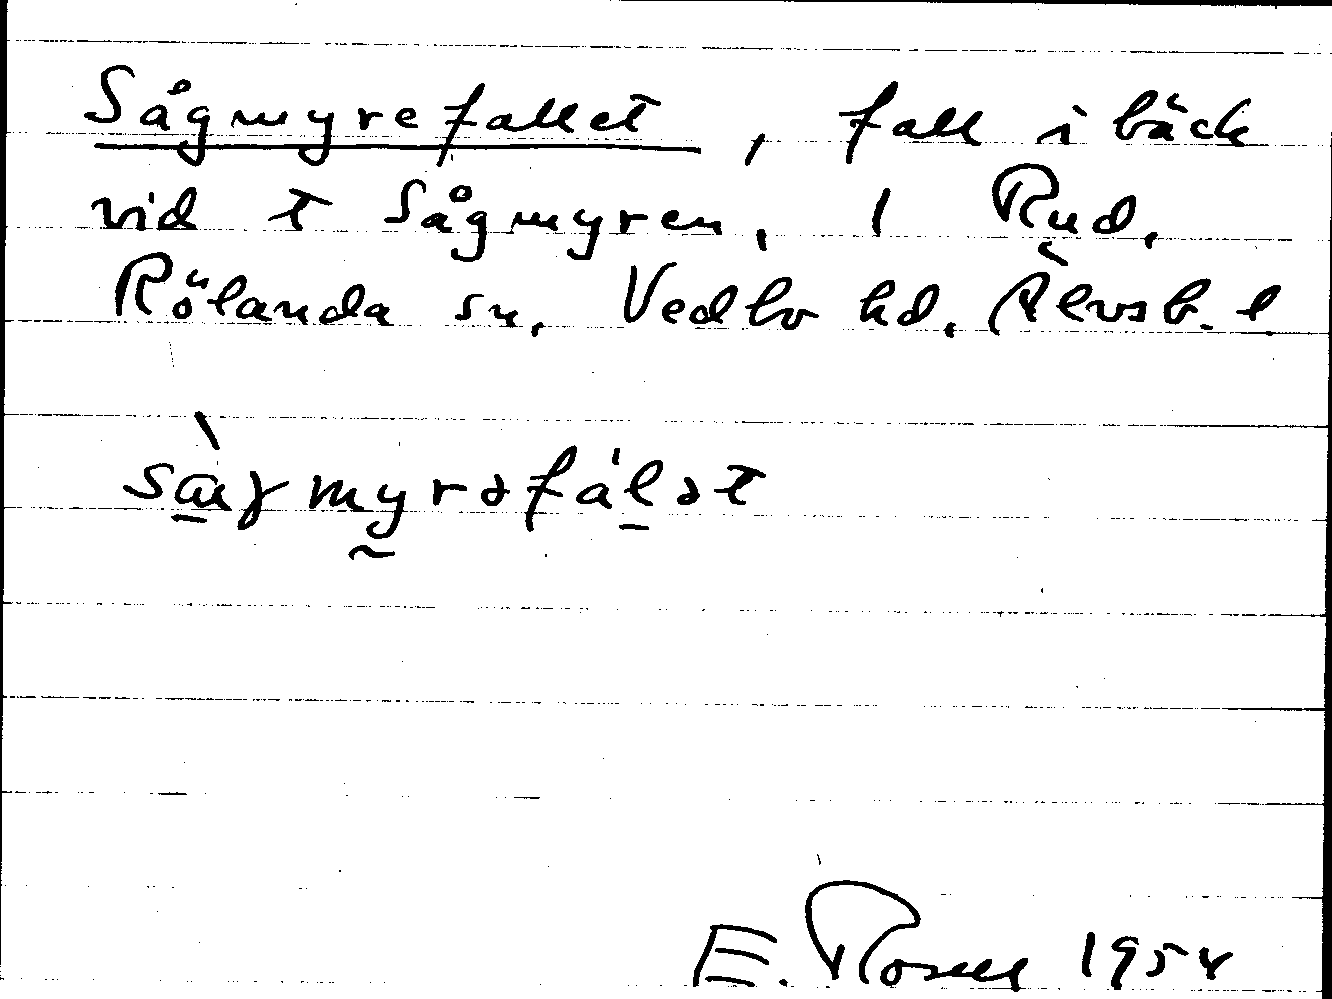 Sågmyrefallet, fall i bäck
vid t Sågmyren, 1 Rud,
Rölanda sn, Vedbo hd, Älvsb. l
E. Rosell 1954